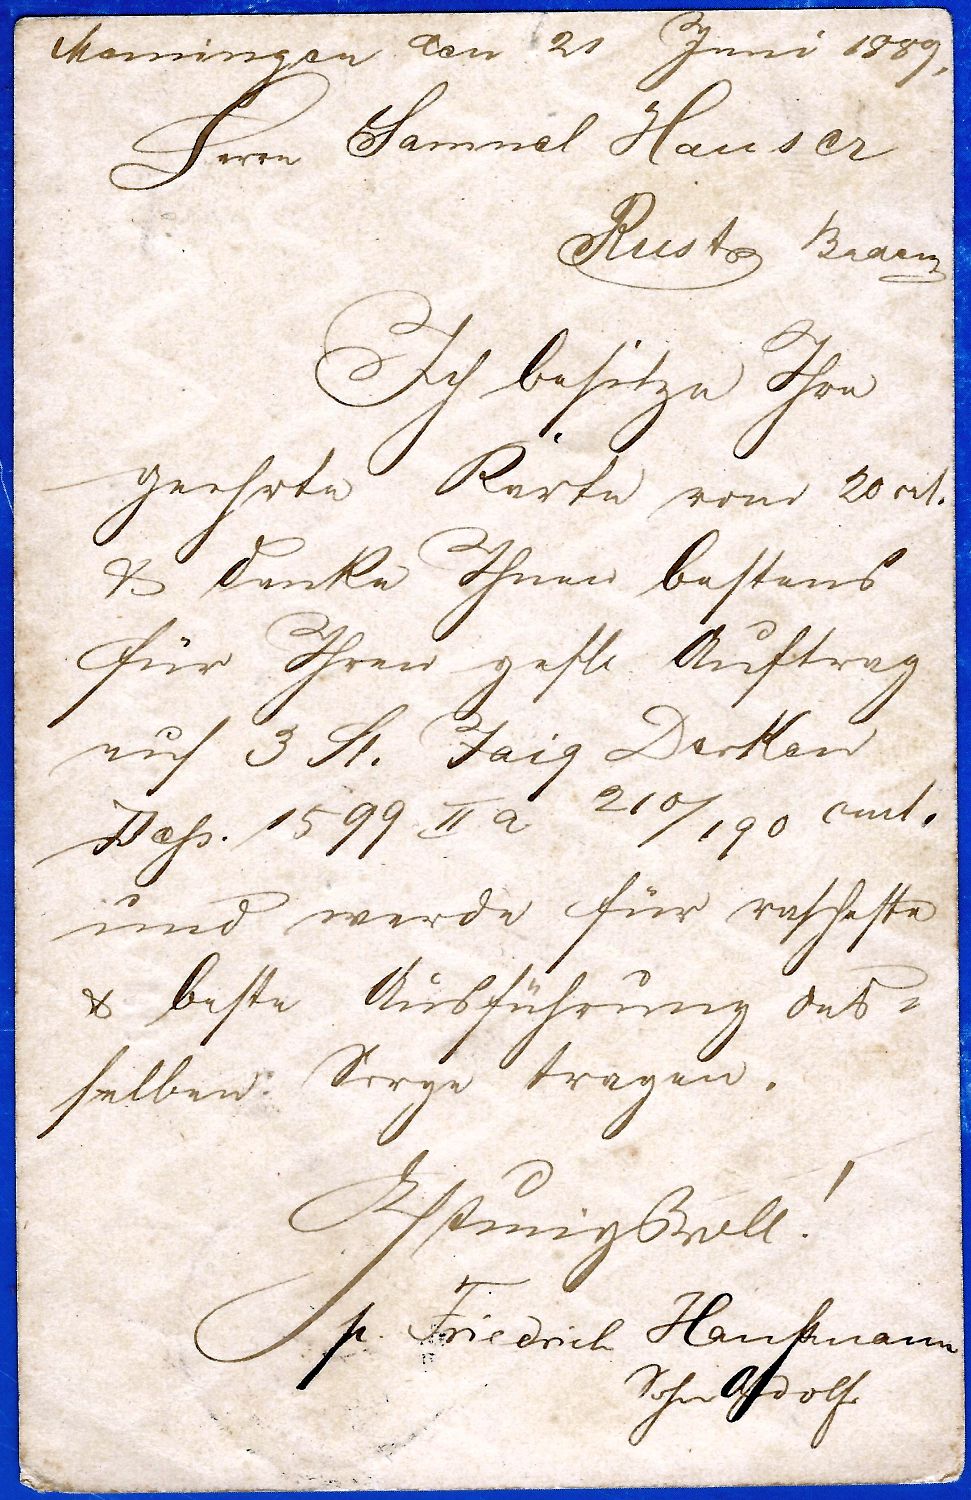 Memingen den 21 Juni 1889.
Herrn Samuel Hauser
Rust Baden
Ich besitze Ihre
geehrte Karte vom 20 crt.
& danke Ihnen bestens
für Ihren gefl. Auftrag
auf 3 St. Jaiq Decken
Dess. 1599 II a 210/190 cmt.
und werde für rascheste
& beste Ausführung des=
selben Sorge tragen.
Achtungsvoll!
p. Friedrich Haussmann
Sohn Adolf.